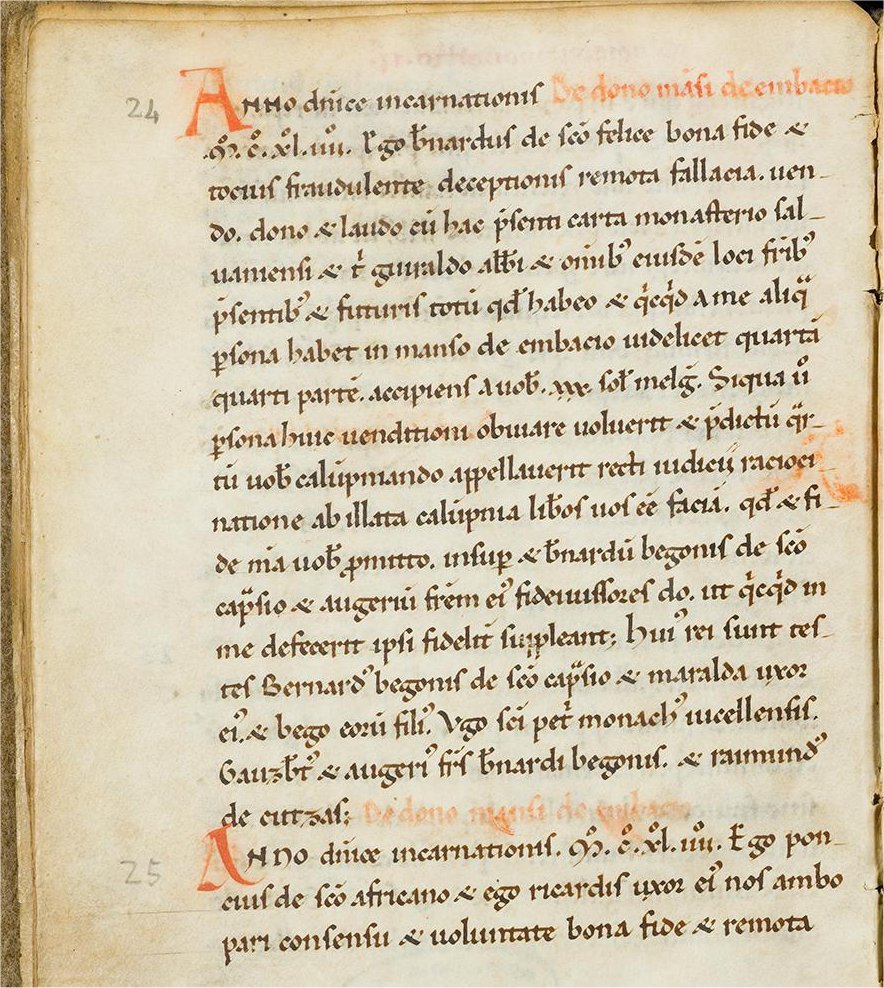 24
Anno dn̄ice incarnationis De dono māsi de embacio
.M̊. c̊. x̊l. iiii̊. Ego b̄nardus de sc̄o felice bona fide &
tocius fraudulente deceptionis remota fallacia. uen-
do. dono & laudo cū hac p̄senti carta monasterio sal-
uaniensi & t' guiraldo abb̄i & om̄ibꝰ eiusdē loci fr̄ibꝰ
p̄sentibꝰ & futuris totū qd̄ habeo & qicqid a me aliqa
ꝑsona habet in manso de embacio uidelicet quartā
quarti partē. accipiens a uob̄. xxx. sol̄ melḡ. Siqua ů
ꝑsona huic uenditioni obuiare uoluerit & p̄dictū qar-
tū uob̄ calūpniando appellauerit recti iudicii racioci-
natione ab illata calūpnia lib̄os uos eē faciā. qd̄ & fi-
de m̄a uob̄ ꝓmitto. insuꝑ & b̄nardū begonis de sc̄o
capasio & augeriū fr̄em eiꝰ fideiussores do. ut qicqid in
me defecerit ipsi fidelit̄ suppleant; Huiꝰ rei sunt tes-
tes Bernardꝰ begonis de sc̄o capasio & maralda uxor
eiꝰ. & bego eorū filiꝰ. Vgo sc̄i pet' monachꝰ uicellensis.
Gauzb̄tꝰ & augeriꝰ fr̄s b̄nardi begonis. & raimundꝰ
de cutzas; De dono mansi de embacio
25
Anno dn̄ice incarnationis. M̊. c̊. x̊l. iiii̊. Ego pon-
cius de sc̄o africano & ego ricardis uxor eiꝰ nos ambo
pari consensu & uoluntate bona fide & remota